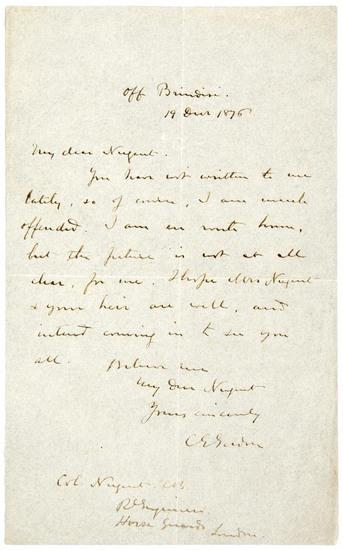 off Brindisi.
19 Decr 1876
My dear Nugent.
You have not written to me
lately, so of course, I am much
offended. I am en route home,
but the future is not at all
clear, for me. I hope Mrs Nugent
& your heir are well, and
intend coming in to see you
all.
Believe me
My dear Nugent
Yours sincerely
C E Gordon
Col Nugent. CB.
Rl Engineers
Horse Guards London.